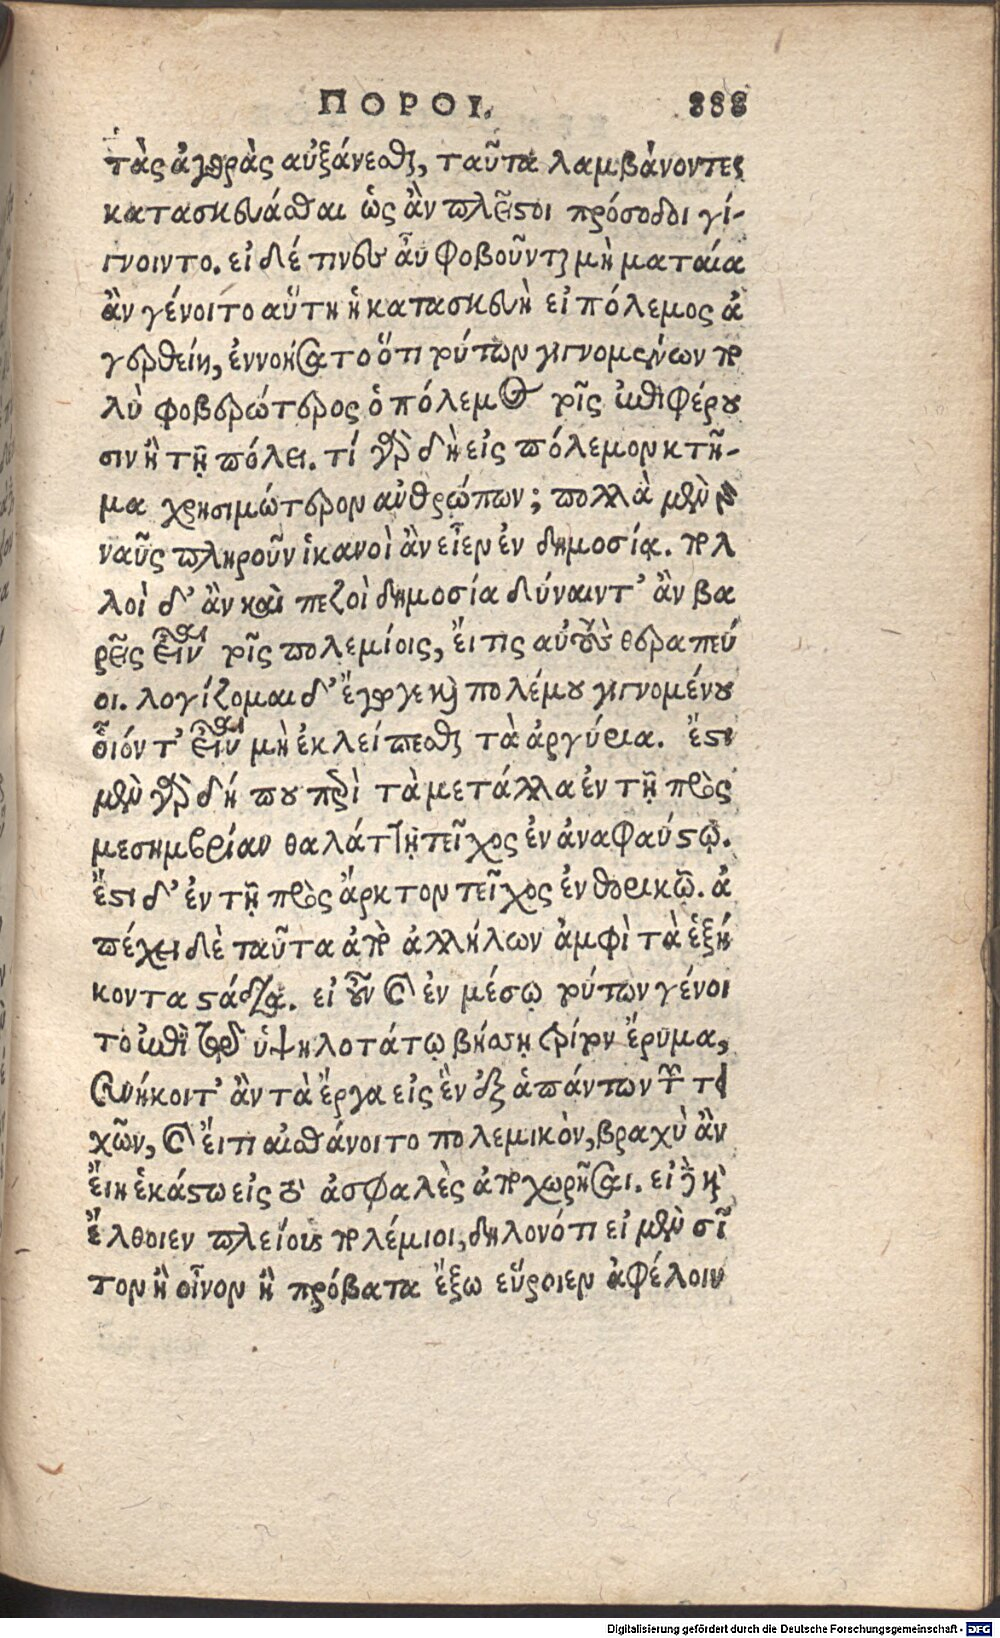 ΠΟΡΟΙ. 888
τὰς ἀγορὰς αὐξάνεσθαι, ταῦτα λαμβάνοντες
κατασκευάσασθαι ὡς ἂν πλεῖστοι πρόσοδοι γί-
γνοιντο. εἰ δέ τινες αὖ φοβοῦνται μὴ ματαία
ἂν γένοιτο αὕτη ἡ κατασκευὴ εἰ πόλεμος ἐ
γερθείη, ἐννοησάτο ὅτι τούτων γιγνομένων πο
λὺ φοβερώτερος ὁ πόλεμος τοῖς ἐπιφέρου
σιν ἢ τῇ πόλει. τί γὰρ δὴ εἰς πόλεμον κτῆ-
μα χρησιμώτερον ἀνθρώπων; πολλὰς μὲν
ναῦς πληροῦν ἱκανοὶ ἂν εἶεν ἐν δημοσίᾳ. πολ
λοὶ δ' ἂν καὶ πεζοὶ δημοσία δύναιντ' ἂν βα
ρεῖς εἶναι τοῖς πολεμίοις, εἴ τις αὐτοὺς θεραπεύ
οι. λογίζομαι δ' ἔγωγε καὶ πολέμου γιγνομένου
οἷόν τ' εἶναι μὴ ἐκλείπεσθαι τὰ ἀργύρια. ἔστι
μὲν γὰρ δή που περὶ τὰ μέταλλα ἐν τῇ πρὸς
μεσημβρίαν θαλάττῃ τεῖχος ἐν ἀναφαύστῳ.
ἔστι δ' ἐν τῇ πρὸς ἄρκτον τεῖχος ἐν θορικῷ. ἀ
πέχει δὲ ταῦτα ἀπὸ ἀλλήλων ἀμφὶ τὰ ἑξή
κοντα στάδια. εἰ οὖν καὶ ἐν μέσῳ τούτων γένοι
το ἐπὶ τῷ ὑψηλοτάτῳ βήσσῃ τρίτον ἔρυμα,
συνήκοιτ' ἂν τὰ ἔργα εἰς ἓν ἐξ ἁπάντων τῶν τει
χῶν, καὶ εἴ τι αἰσθάνοιτο πολεμικὸν, βραχὺ ἂν
εἴη ἑκάστῳ εἰς τὸ ἀσφαλὲς ἀποχωρῆσαι. εἰ δὲ καὶ
ἔλθοιεν πλείους πολέμιοι, δῆλον ὅτι εἰ μὲν σῖ
τον ἢ οἶνον ἢ πρόβατα ἔξω εὕροιεν ἀφέλοιν
Digitalisierung gefördert durch die Deutsche Forschungsgemeinschaft - DFG